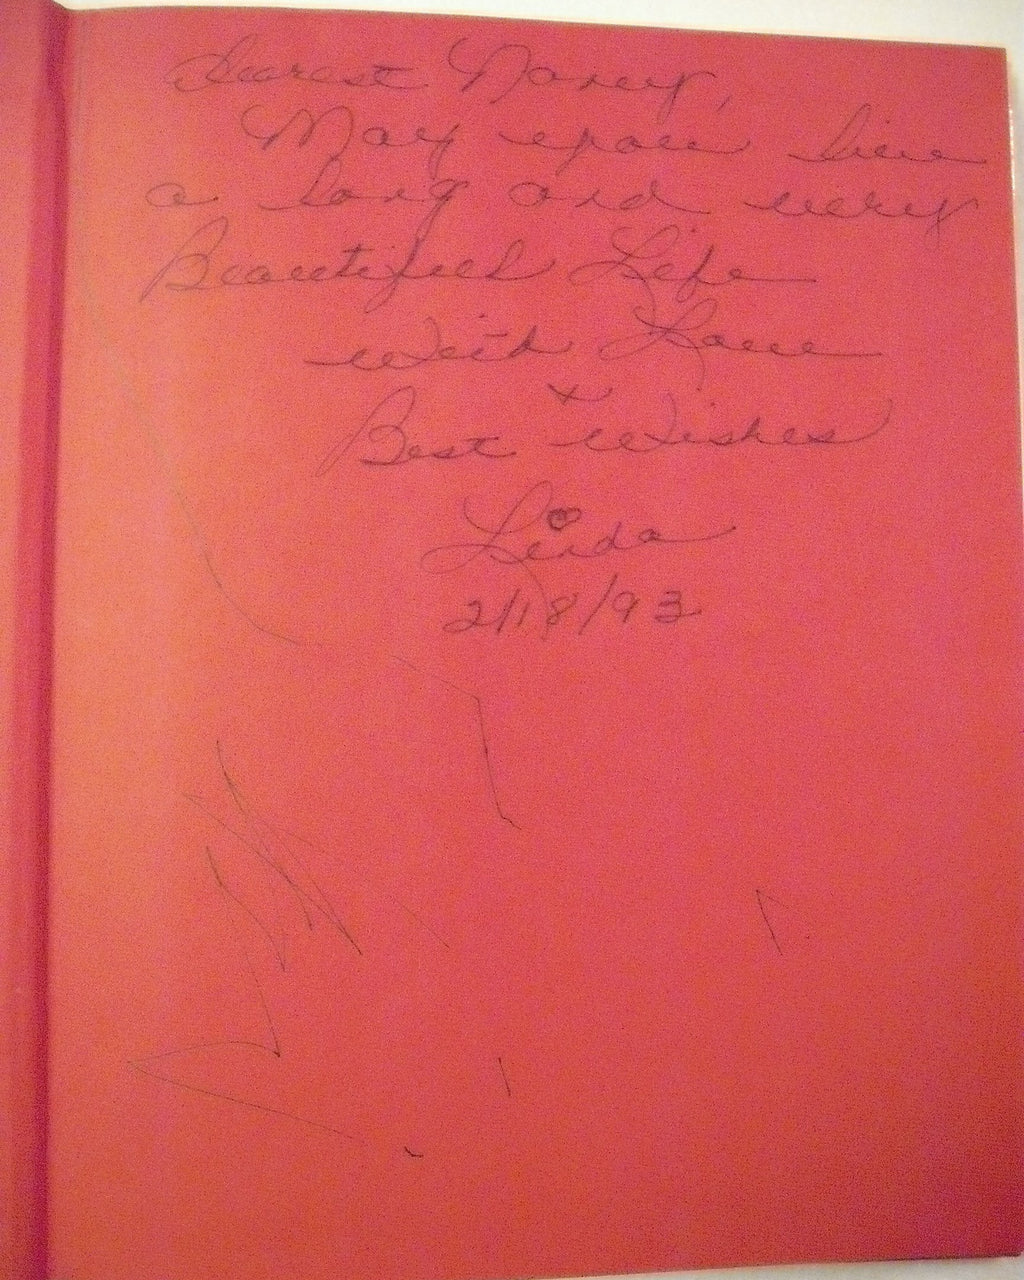 Dearest Nancy,
May you live
a long and very
Beautiful Life
with Love
+
Best Wishes
Linda
2/18/93